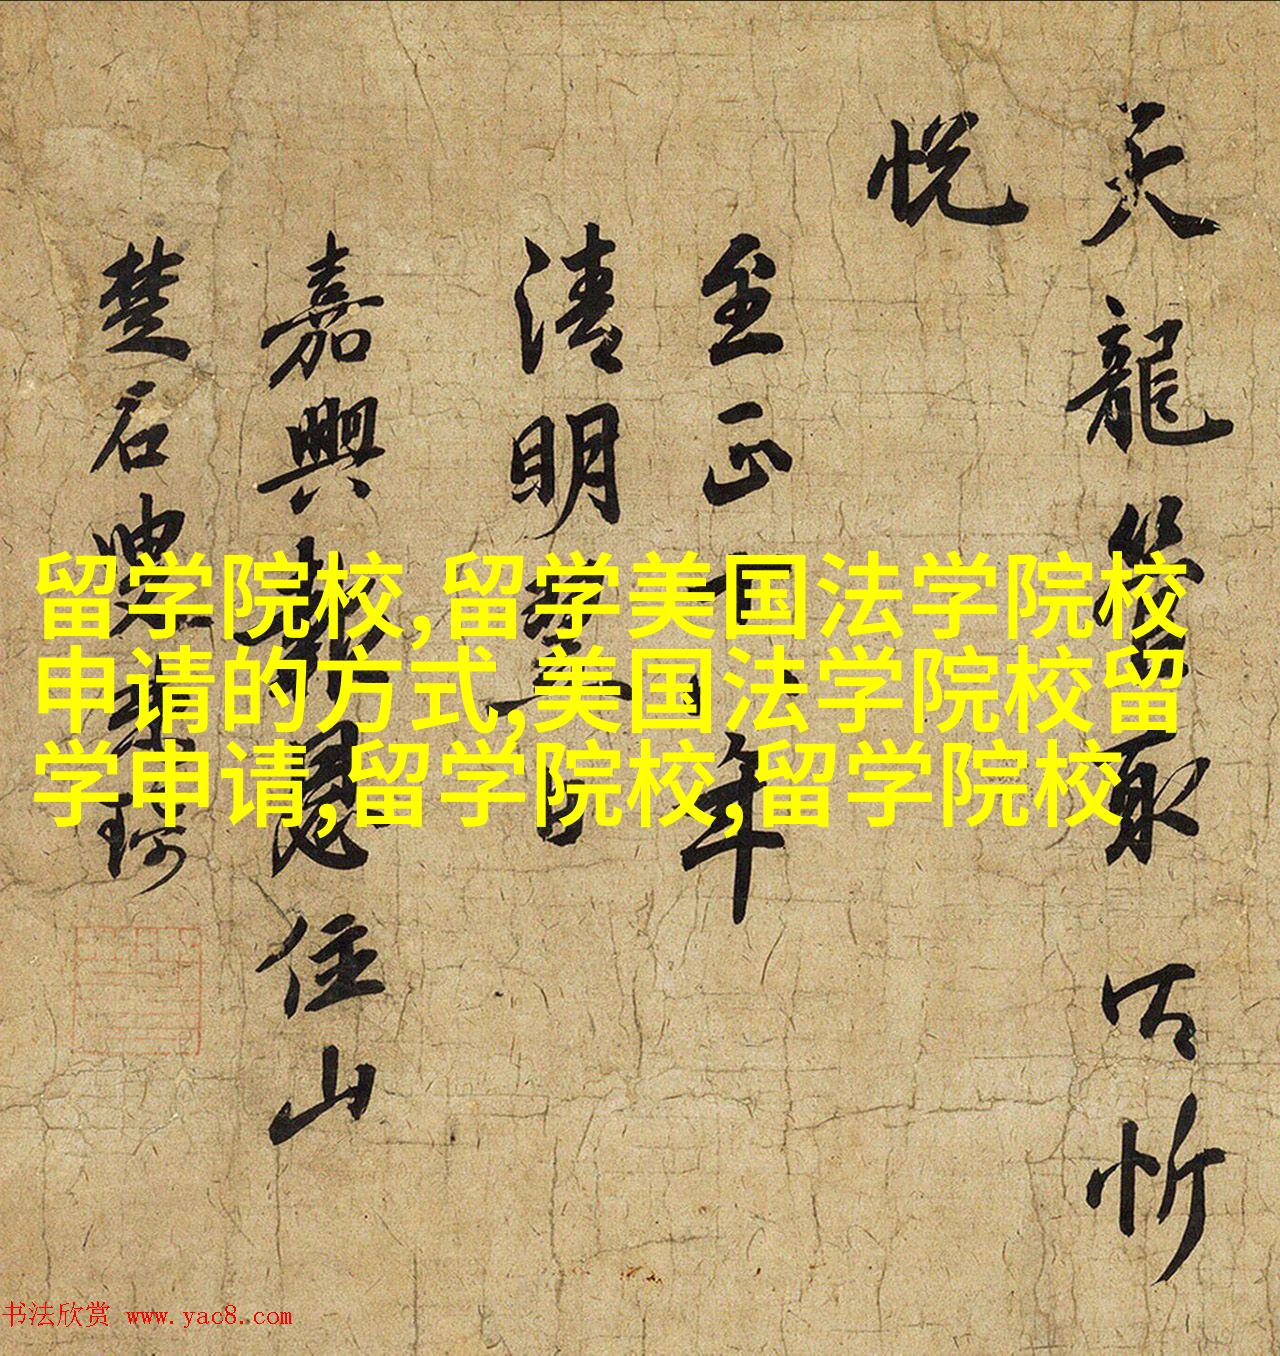 天龍取以忻
悦
至正十年
清明日
嘉興報恩住山
楚石梵琦
留学院校,留学美国法学院校
申请的方式,美国法学院校留
学申请,留学院校,留学院校
书法欣赏 www.yac8.com